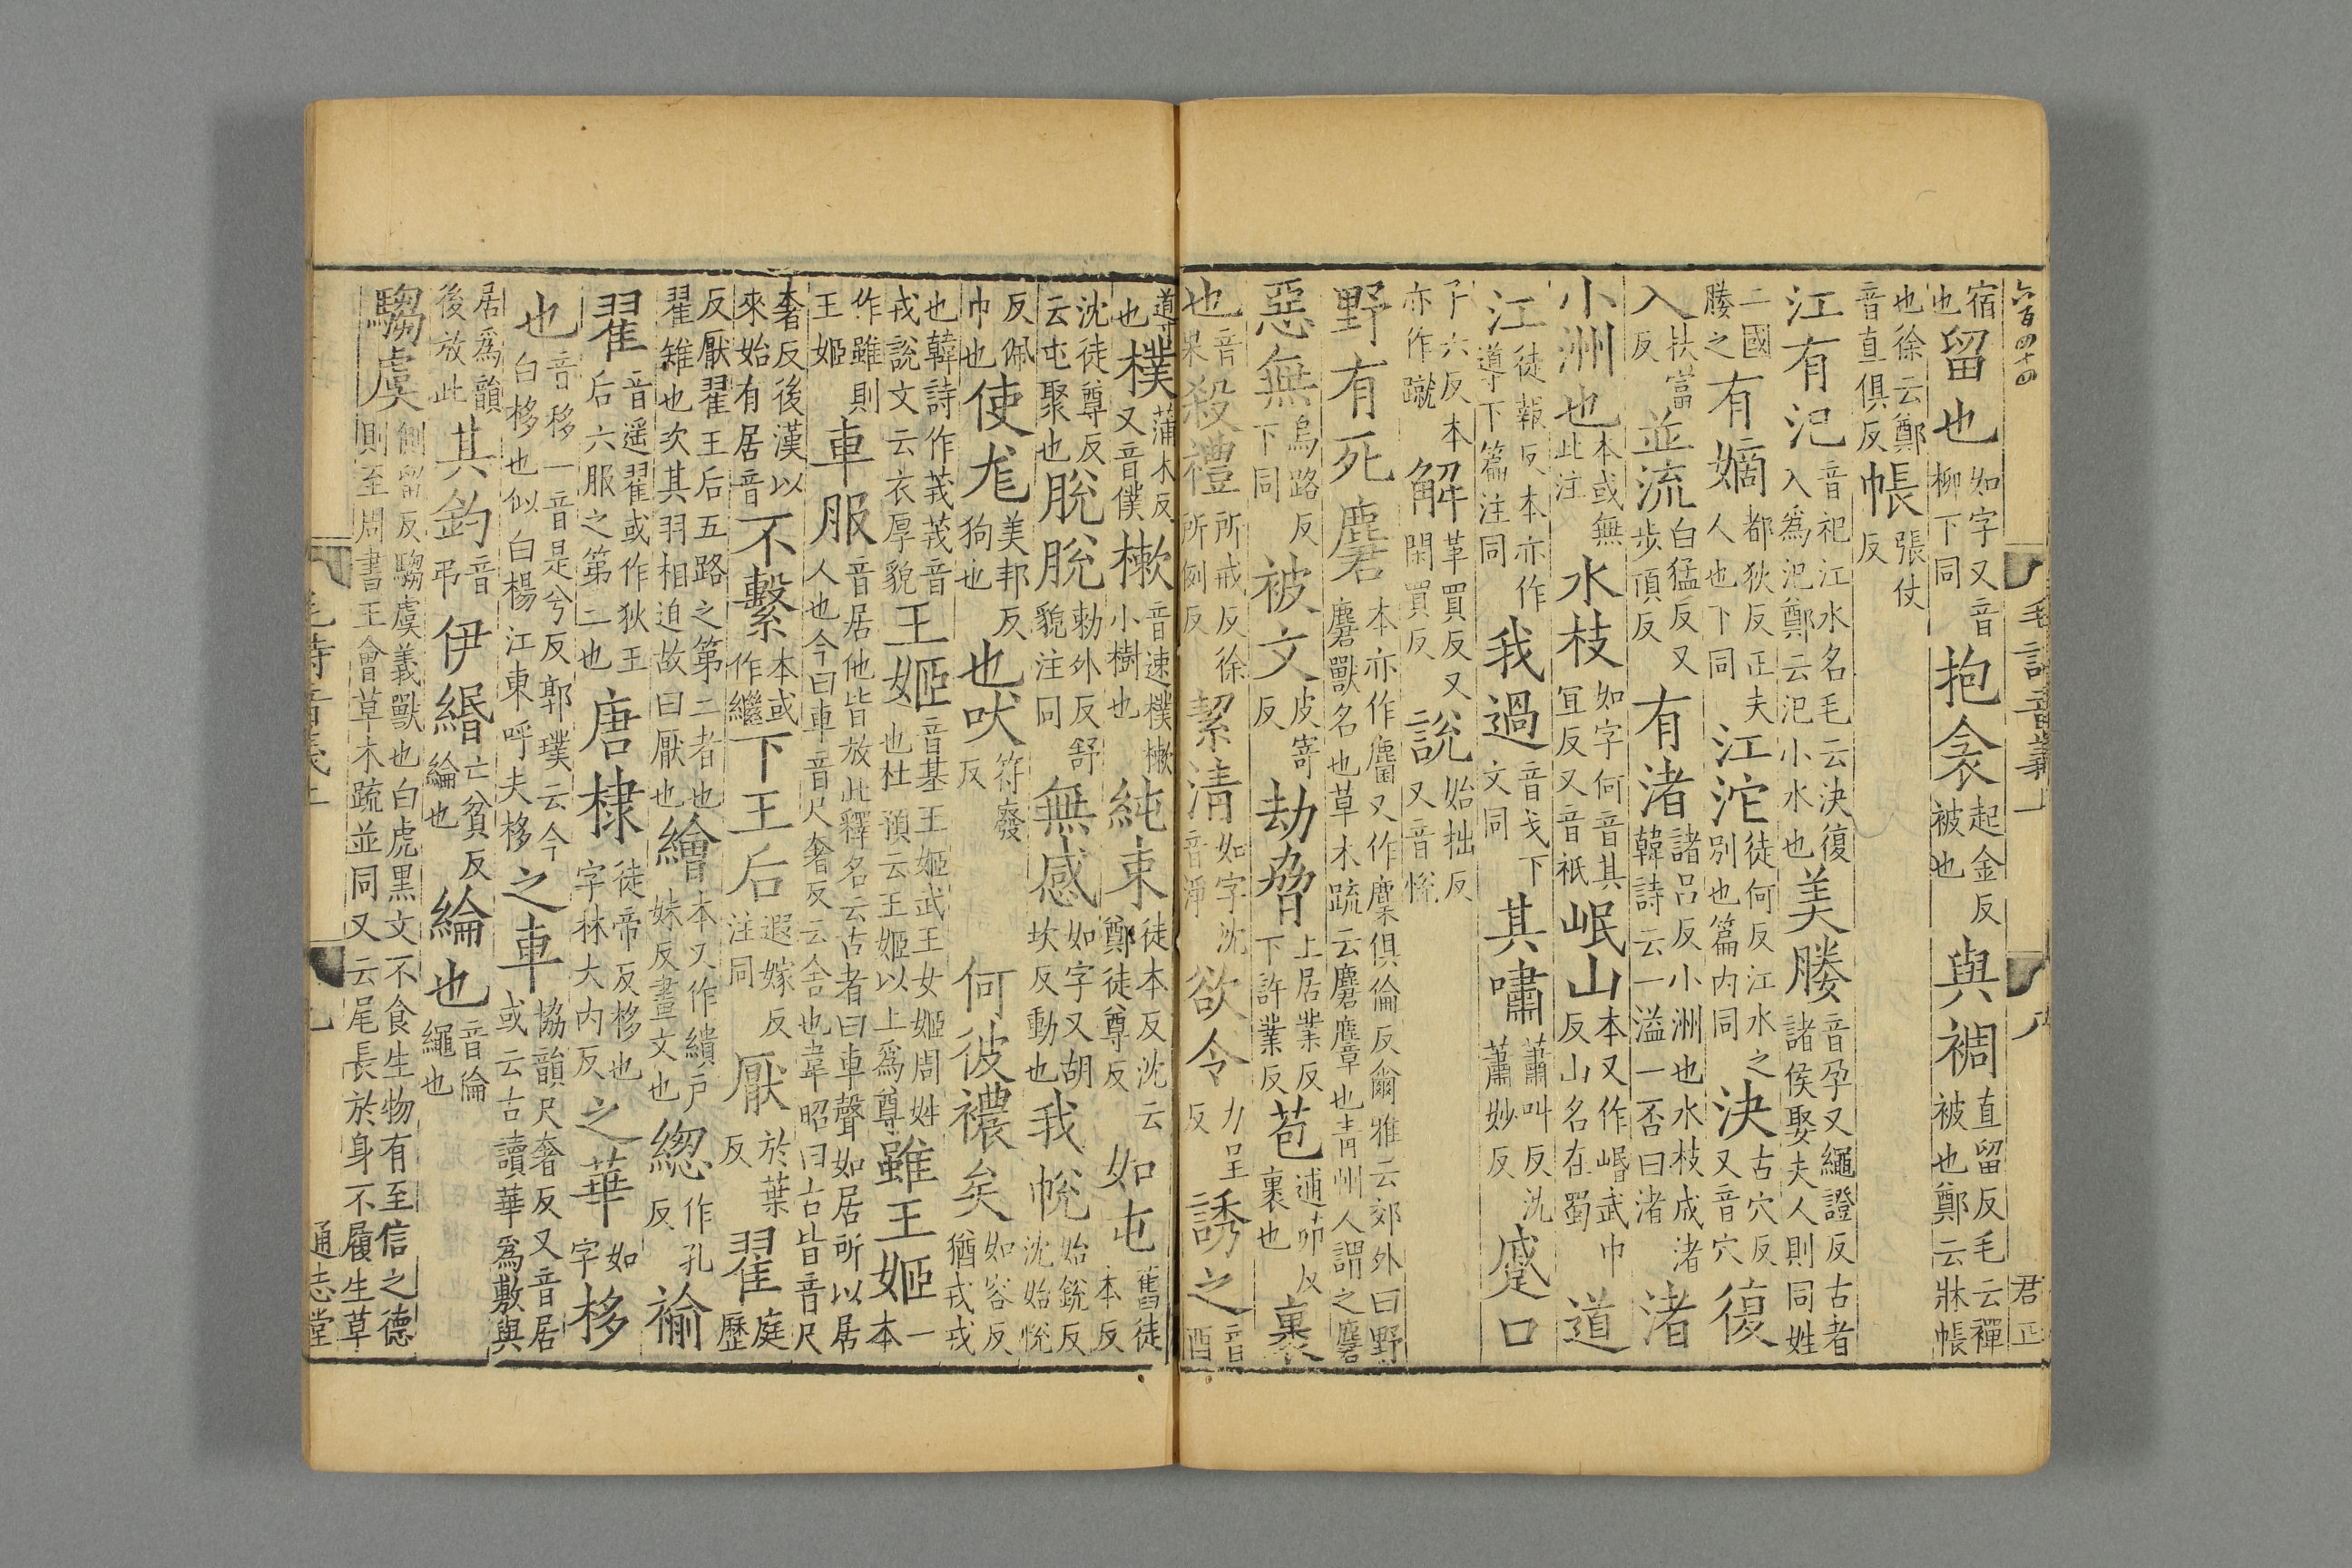 六百四十四 毛詩音義上 八 君正
宿也留也如字又音柳下同抱衾起金反被也與裯直留反毛云襌被也鄭云牀帳
也徐云鄭音直俱反帳張仗反
江有汜音祀江水名毛云決復入爲汜鄭云汜小水也美媵音孕又繩證反古者諸侯娶夫人則同姓
二國媵之有嫡都狄反正夫人也下同江沱徒何反江水之別也篇内同決古穴反又音穴復
入扶富反並流白猛反又步頂反有渚諸呂反小洲也水枝成渚韓詩云一溢一否曰渚渚
小洲也本或無此注水枝如字何音其宜反又音祇岷山本又作㟭武巾反山名在蜀道
江徒報反本亦作導下篇注同我過音戈下文同其嘯蕭叫反沈蕭妙反蹙口
子六反本亦作蹴解革買反又閑買反說始拙反又音悅
野有死麕本亦作麏又作麇俱倫反爾雅云郊外曰野麕獸名也草木疏云麕麞也青州人謂之麕
惡無烏路反下同被文皮寄反劫脅上居業反下許業反苞逋茆反裹也裹
也音果殺禮所戒反徐所例反絜清如字沈音淨欲令力呈反誘之音酉
導也樸蒲木反又音僕樕音速樸樕小樹也純束徒本反沈云鄭徒尊反如屯舊徒本反
沈徒尊反云屯聚也脫脫勑外反舒貌注同無感如字又胡坎反動也我帨始銳反沈始悅
反佩巾也使尨美邦反狗也也吠符廢反何彼襛矣如容反猶戎戎
也韓詩作莪莪音戎說文云衣厚貌王姬音基王姬武王女姬周姓也杜預云王姬以上爲尊雖王姬一本
作雖則王姬車服音居他皆放此釋名云古者曰車聲如居所以居人也今曰車音尺奢反云舍也韋昭曰古皆音尺
奢反後漢以來始有居音不繫本或作繼下王后遐嫁反注同厭於葉反翟庭歷
反厭翟王后五路之第二者也翟雉也次其羽相迫故曰厭也繪本又作繢戶妹反畫文也緫作孔反褕
翟音遥翟或作狄王后六服之第二也唐棣徒帝反栘也字林大内反之華如字栘
也音移一音是兮反郭璞云今白栘也似白楊江東呼夫栘之車協韻尺奢反又音居或云古讀華爲敷與
居爲韻後放此其釣音弔伊緡亡貧反綸也綸也音倫繩也
騶虞側留反騶虞義獸也白虎黑文不食生物有至信之德則至周書王會草木疏並同又云尾長於身不履生草
毛詩音義上 九 通志堂